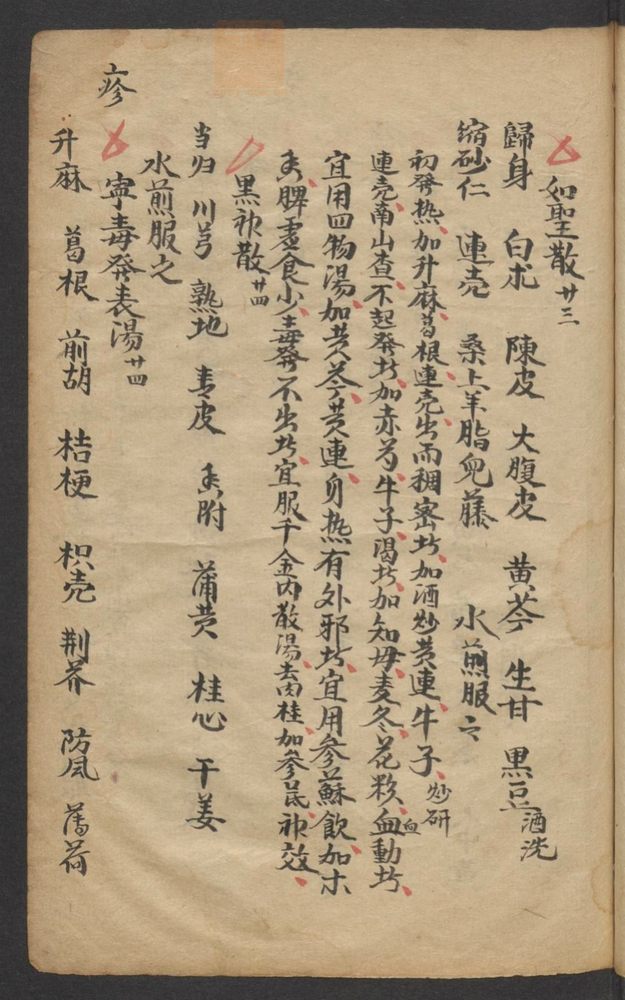 如聖散 廿三
歸身 白朮 陳皮 大腹皮 黄芩 生甘 黑豆 酒洗
缩砂仁 連壳 桑上羊脂兜藤 水煎服之
初發热加升麻葛根連壳出而稠密者加酒炒黄連牛子炒研
連壳南山查不起發者加赤芍牛子渴者加知母麦冬花粉血動者
宜用四物湯加黄芩黄連身热有外邪者宜用參蘇飲加木
香脾虚食少毒發不出者宜服千金内散湯去肉桂加參芪神效
黑神散 廿四
当归 川芎 熟地 青皮 香附 蒲黄 桂心 干姜
水煎服之
寧毒發表湯 廿四
升麻 葛根 前胡 桔梗 枳壳 荆芥 防風 薄荷
疹